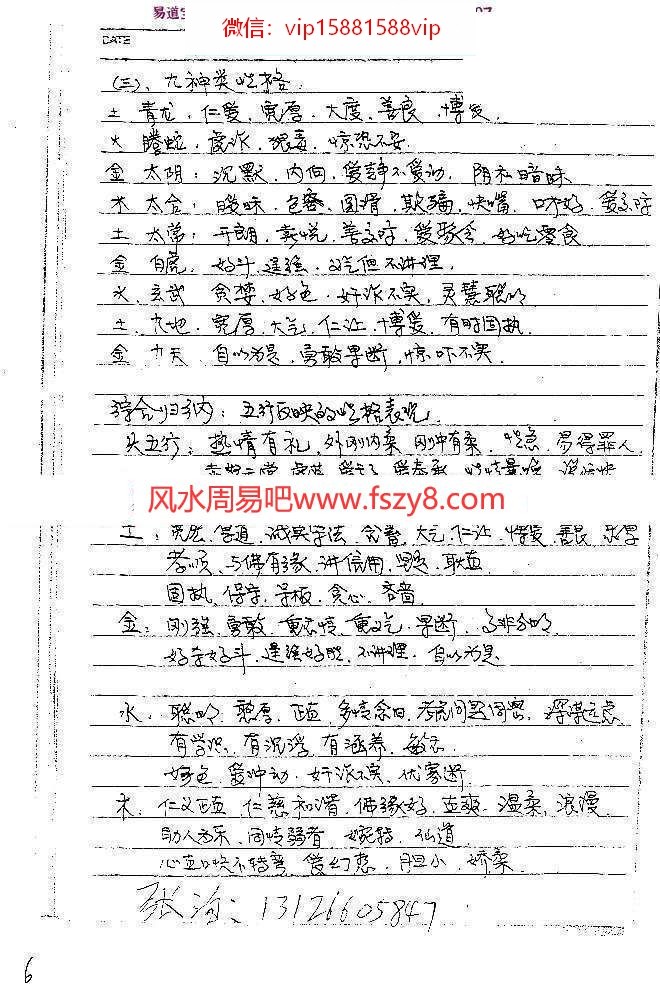 易道
微信：vip15881588vip
DATE
(三)、九神类性格：
土 青龙：仁爱、宽厚、大度、善良、博爱、
火 螣蛇：虚诈、狠毒、惊恐不安
金 太阴：沉默、内向、爱静不爱动、阴私暗昧
木 六合：暧昧、圆滑、欺骗、快嘴、口才好、爱交好
土 太常：开朗、喜悦、善交好、爱聚会、好吃零食
金 白虎：好斗、逞强、义气但不讲理、
水、玄武 贪婪、好色、奸诈不实、灵慧聪明
土、九地：宽厚、大气、仁让、博爱、有时固执、
金 九天：自以为是、勇敢果断、惊吓不实、
综合归纳：五行反映的性格表现
火五行：热情有礼、外刚内柔、刚中有柔、性急、易得罪人、
风水周易吧www.fszy8.com
土：宽宏、厚道、诚实守法、含蓄、大气、仁让、博爱、善良、
孝顺、与佛有缘、讲信用、耿直
固执、保守、呆板、贪心、吝啬
金：刚强、勇敢、重感情、重义气、果断、是非分明
好斗、逞强好胜、不讲理、自以为是
水：聪明、憨厚、正直、多情念旧、考虑问题周密、深谋远虑
有学识、有沉浮、有涵养、敏感、
好色、爱冲动、奸诈不实、优寡断
木：仁义正直、仁慈和谐、佛缘好、直爽、温柔、浪漫
助人为乐、同情弱者、仙道
心直口快不转弯、爱幻想、胆小、娇柔
13126605847
6